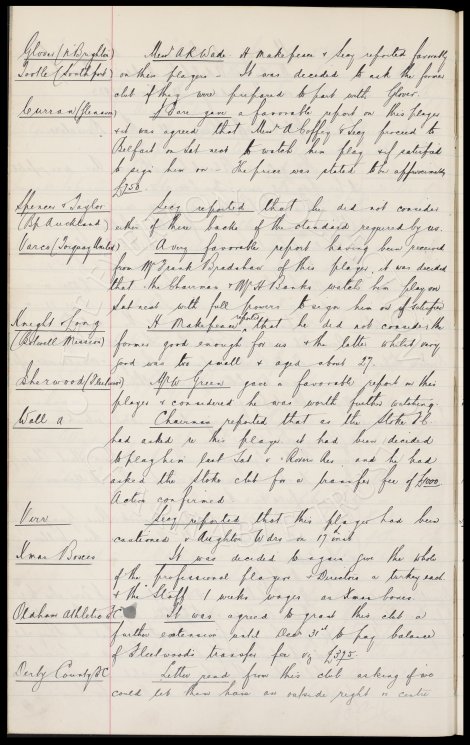 Glover (N. Brighton) Messrs A R Wade H Makepeace & Secy reported favorably
Tootle (Southport) on these players - It was decided to ask the former
club if they were prepared to part with Glover.
Curran (Glenavon) J Dore gave a favorable report on this player
& it was agreed that Messrs A Coffey & Secy proceed to
Belfast on Sat next to watch him play & if satisfied
to sign him on - The price was stated to be approximately
£750.
Spencer & Taylor Secy reported that he did not consider
(Bp. Auckland) either of these backs of the standard required by us.
Varco (Torquay United) A very favorable report having been received
from Mr Frank Bradshaw of this player, it was decided
that the Chairman & Mr H Banks watch him play on
Sat next with full powers to sign him on if satisfied
Knight & Long H Makepeace reported that he did not consider the
(Botwell Mission) former good enough for us & the latter whilst very
good was too small & aged about 27.
Sherwood (Fleetwood) Mr W Green gave a favorable report on this
player & considered he was worth further watching.
Wall a Chairman reported that as the Stoke F.C.
had asked re this player it had been decided
to play him last Sat v Rovers Res and he had
asked the Stoke club for a transfer fee of £1000
Action confirmed
Virr Secy reported that this player had been
cautioned v Heighton Wdrs on 17 inst
Xmas Boxes It was decided to again give the whole
of the Professional players & Directors a turkey each
& the Staff 1 weeks wages as Xmas boxes.
Oldham Athletic FC It was agreed to grant this club a
further extension until Dec 31st to pay balance
of Fleetwoods transfer fee viz £395
Derby County FC Letter read from this club asking if we
could let them have an outside right or centre